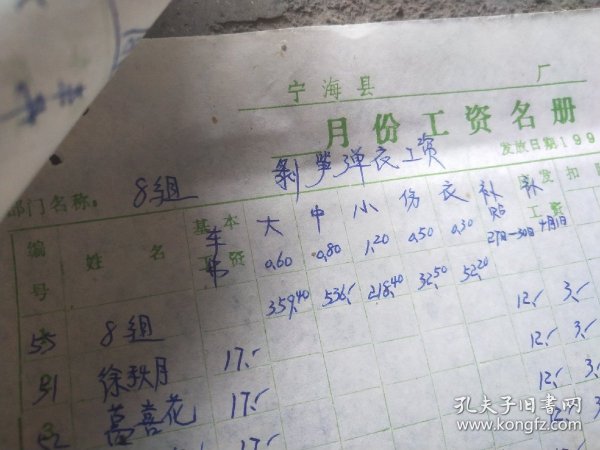 宁海县 厂
月份工资名册
剥笋弹衣工资
发放日期199
部门名称: 8组
编号 姓名 基本工资 车 大 中 小 伤 衣 补贴 应发工资 补 扣
0.60 0.80 1.20 0.50 0.30 27日-30日 4月1日
359.40 536.- 218.40 32.50 52.20
55 8组 12.- 3.-
51 徐秋月 17.- 12.- 3.-
52 喜花 17.- 12.- 3.-
17.- 12.- 3.-
孔夫子旧书网
www.kongfz.com